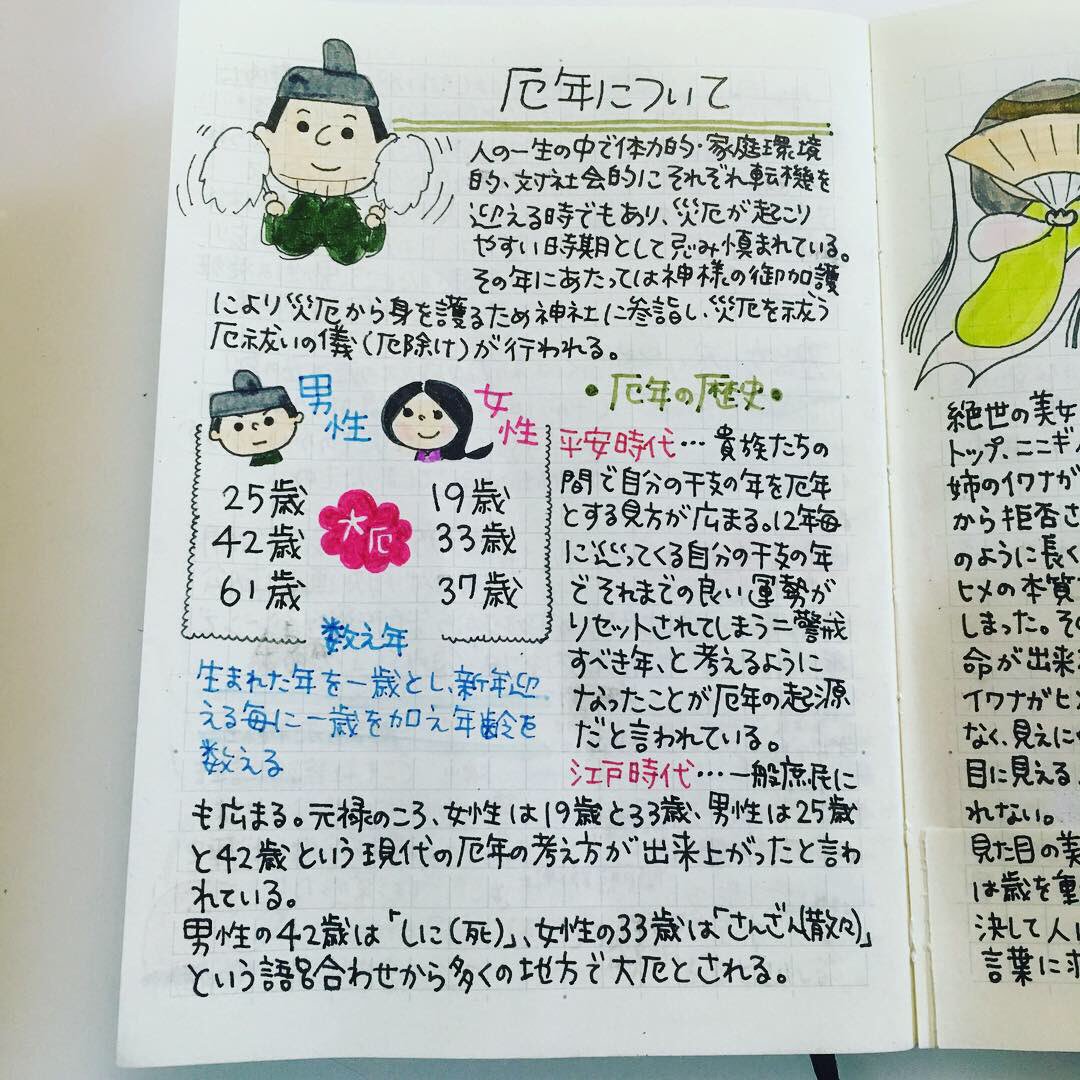 厄年について
人の一生の中で体力的・家庭環境
的、対社会的にそれぞれ転機を
迎える時でもあり、災厄が起こり
やすい時期として忌み慎まれている。
その年にあたっては神様の御加護
により災厄から身を護るため神社に参詣し、災厄を祓う
厄祓いの儀(厄除け)が行われる。
男性
女性
25歳
42歳
61歳
大厄
19歳
33歳
37歳
数え年
生まれた年を一歳とし、新年迎
える毎に一歳を加え年齢を
数える
・厄年の歴史・
平安時代…貴族たちの
間で自分の干支の年を厄年
とする見方が広まる。12年毎
に巡ってくる自分の干支の年
でそれまでの良い運勢が
リセットされてしまう=警戒
すべき年、と考えるように
なったことが厄年の起源
だと言われている。
江戸時代…一般庶民に
も広まる。元禄のころ、女性は19歳と33歳、男性は25歳
と42歳という現代の厄年の考え方が出来上がったと言わ
れている。
男性の42歳は「しに(死)」、女性の33歳は「さんざん(散々)」
という語呂合わせから多くの地方で大厄とされる。
絶世の美女
トップ、ニニギ
姉のイワナが
から拒否さ
のように長く
ヒメの本質
しまった。その
命が出来
イワナがヒメ
なく、見えに
目に見える
れない。
見た目の美
は歳を重
決して人に
言葉に